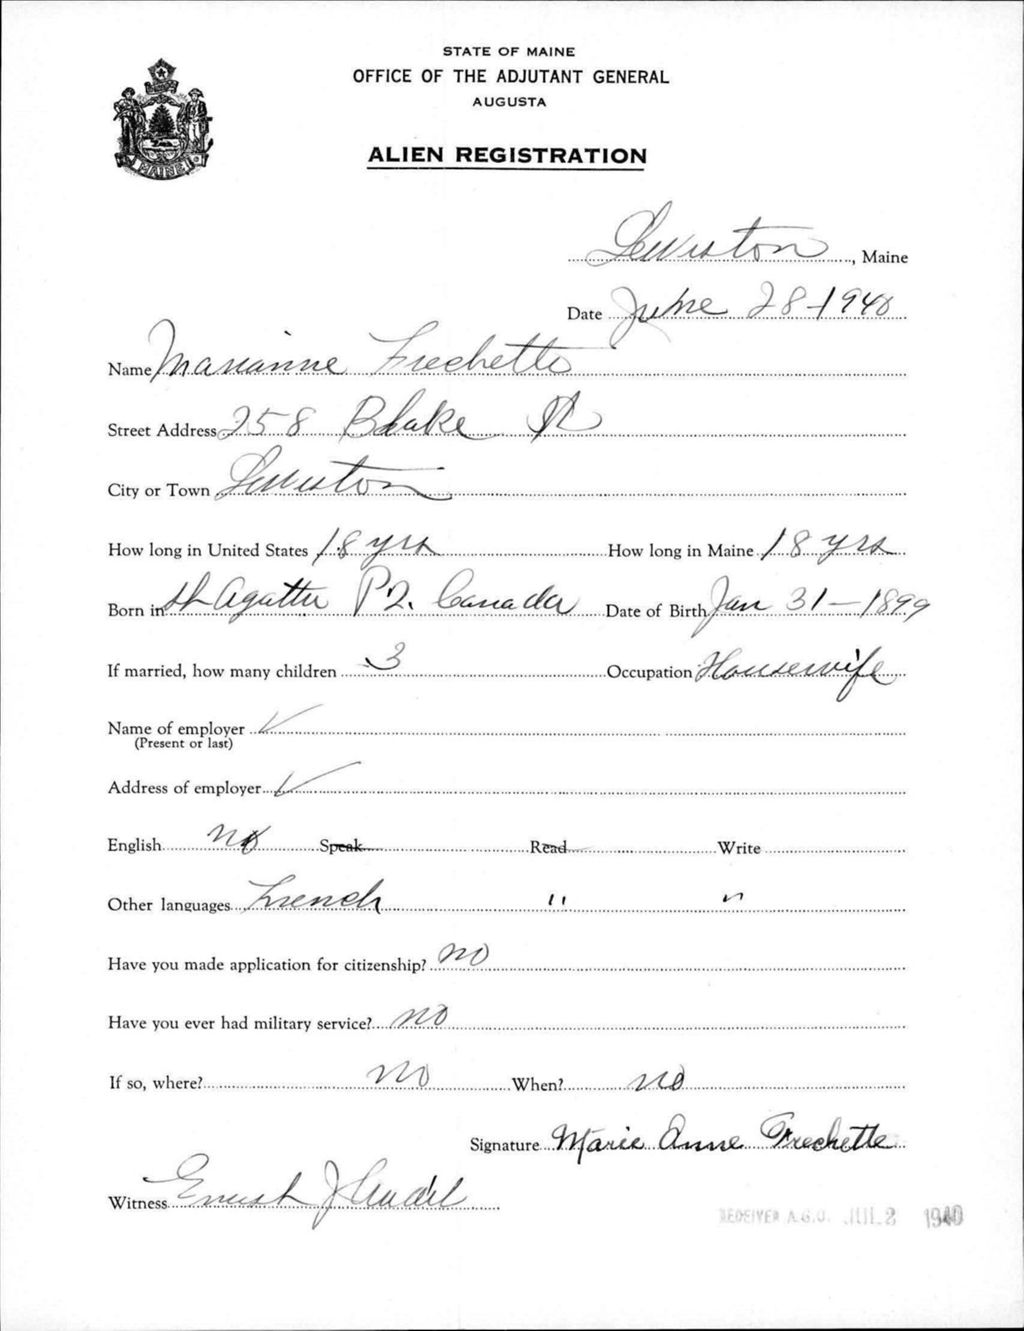 STATE OF MAINE
OFFICE OF THE ADJUTANT GENERAL
AUGUSTA
ALIEN REGISTRATION
MAINE
Lewiston, Maine
Date June 28-1940
Name Marianne Frechette
Street Address 258 Blake St
City or Town Lewiston
How long in United States 18 yrs How long in Maine 18 yrs
Born in St Agathe P2. Canada Date of Birth Jan 31-1899
If married, how many children 3 Occupation Housewife
Name of employer ✓
(Present or last)
Address of employer ✓
English No Speak Read Write
Other languages French " "
Have you made application for citizenship? no
Have you ever had military service? no
If so, where? no When? no
Signature Marie Anne Frechette
Witness J
RECEIVED A.G.O. JUL 2 1940